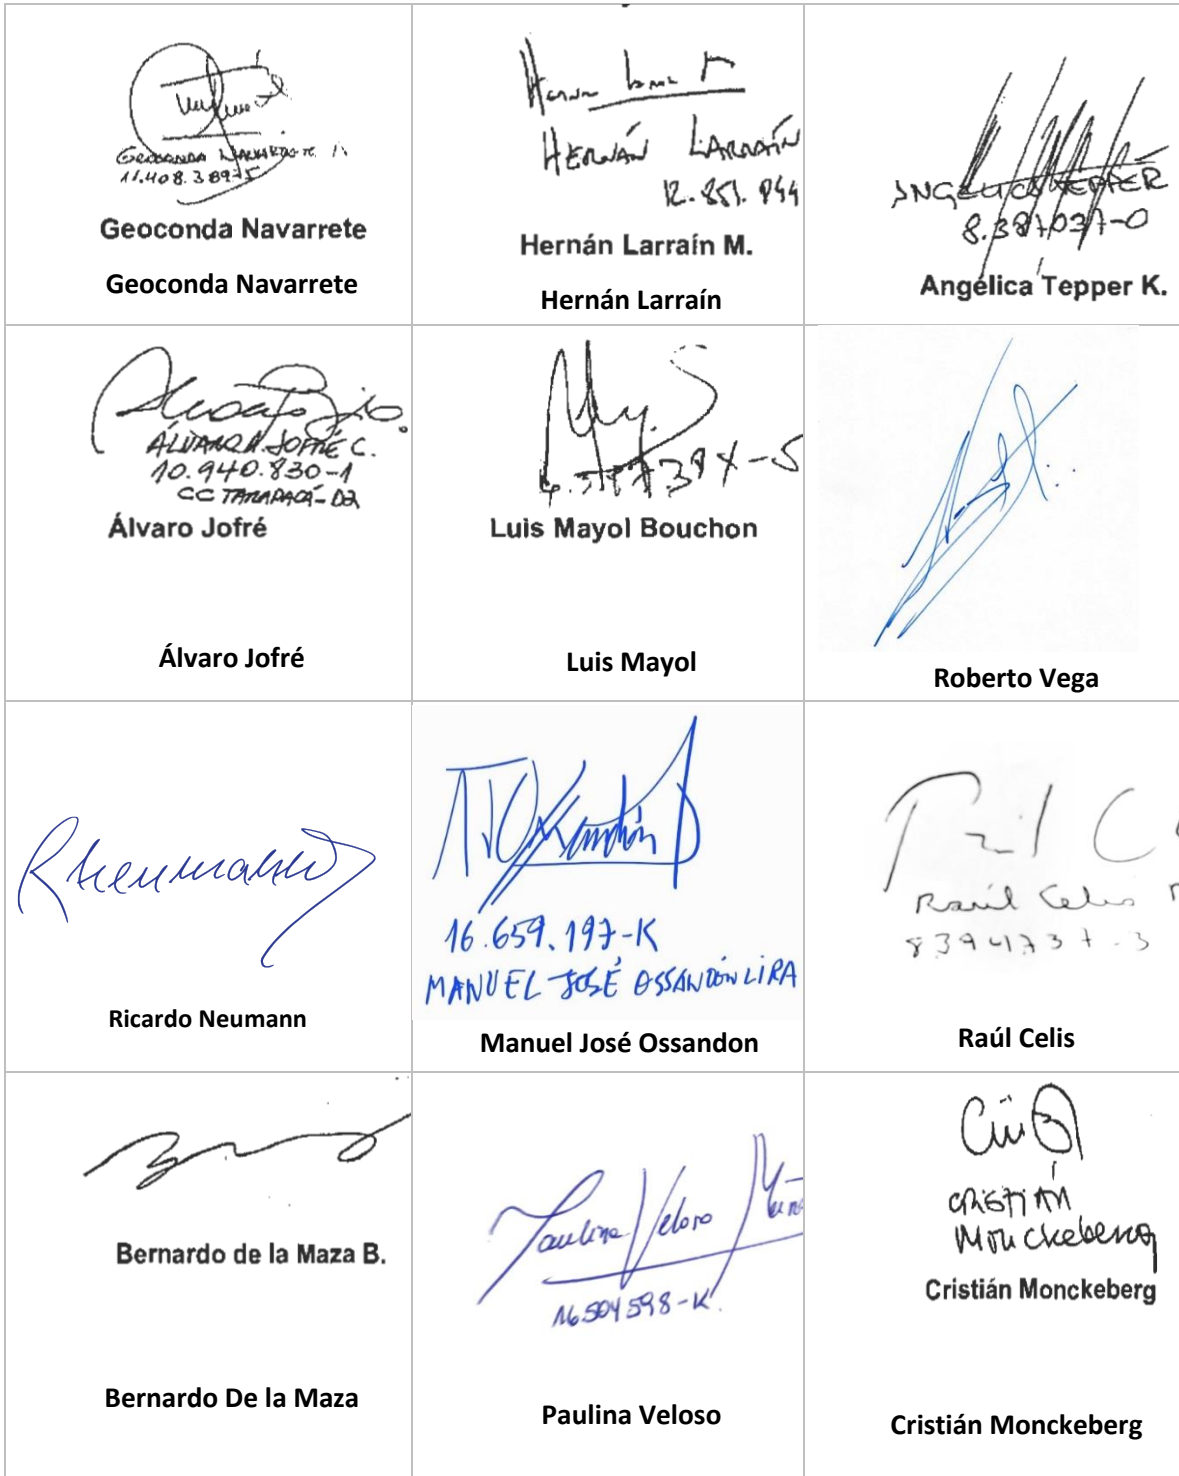 GEOCONDA NAVARRETE
Geoconda Navarrete
Geoconda Navarrete
HERNÁN LARRAÍN
Hernán Larraín M.
Hernán Larraín
ANGELICA TEPPER
8.387.037-0
Angélica Tepper K.
ÁLVARO JOFRÉ C.
10.940.830-1
CC TARAPACÁ-D2
Álvaro Jofré
Álvaro Jofré
Luis Mayol Bouchon
Luis Mayol
Roberto Vega
Rneumann
Ricardo Neumann
16.659.197-K
MANUEL JOSÉ OSSANDÓN LIRA
Manuel José Ossandon
Raúl Celis
8394737-3
Raúl Celis
Bernardo de la Maza B.
Bernardo De la Maza
Paulina Veloso Muño
16504598-K
Paulina Veloso
CRISTIÁN
Monckeberg
Cristián Monckeberg
Cristián Monckeberg